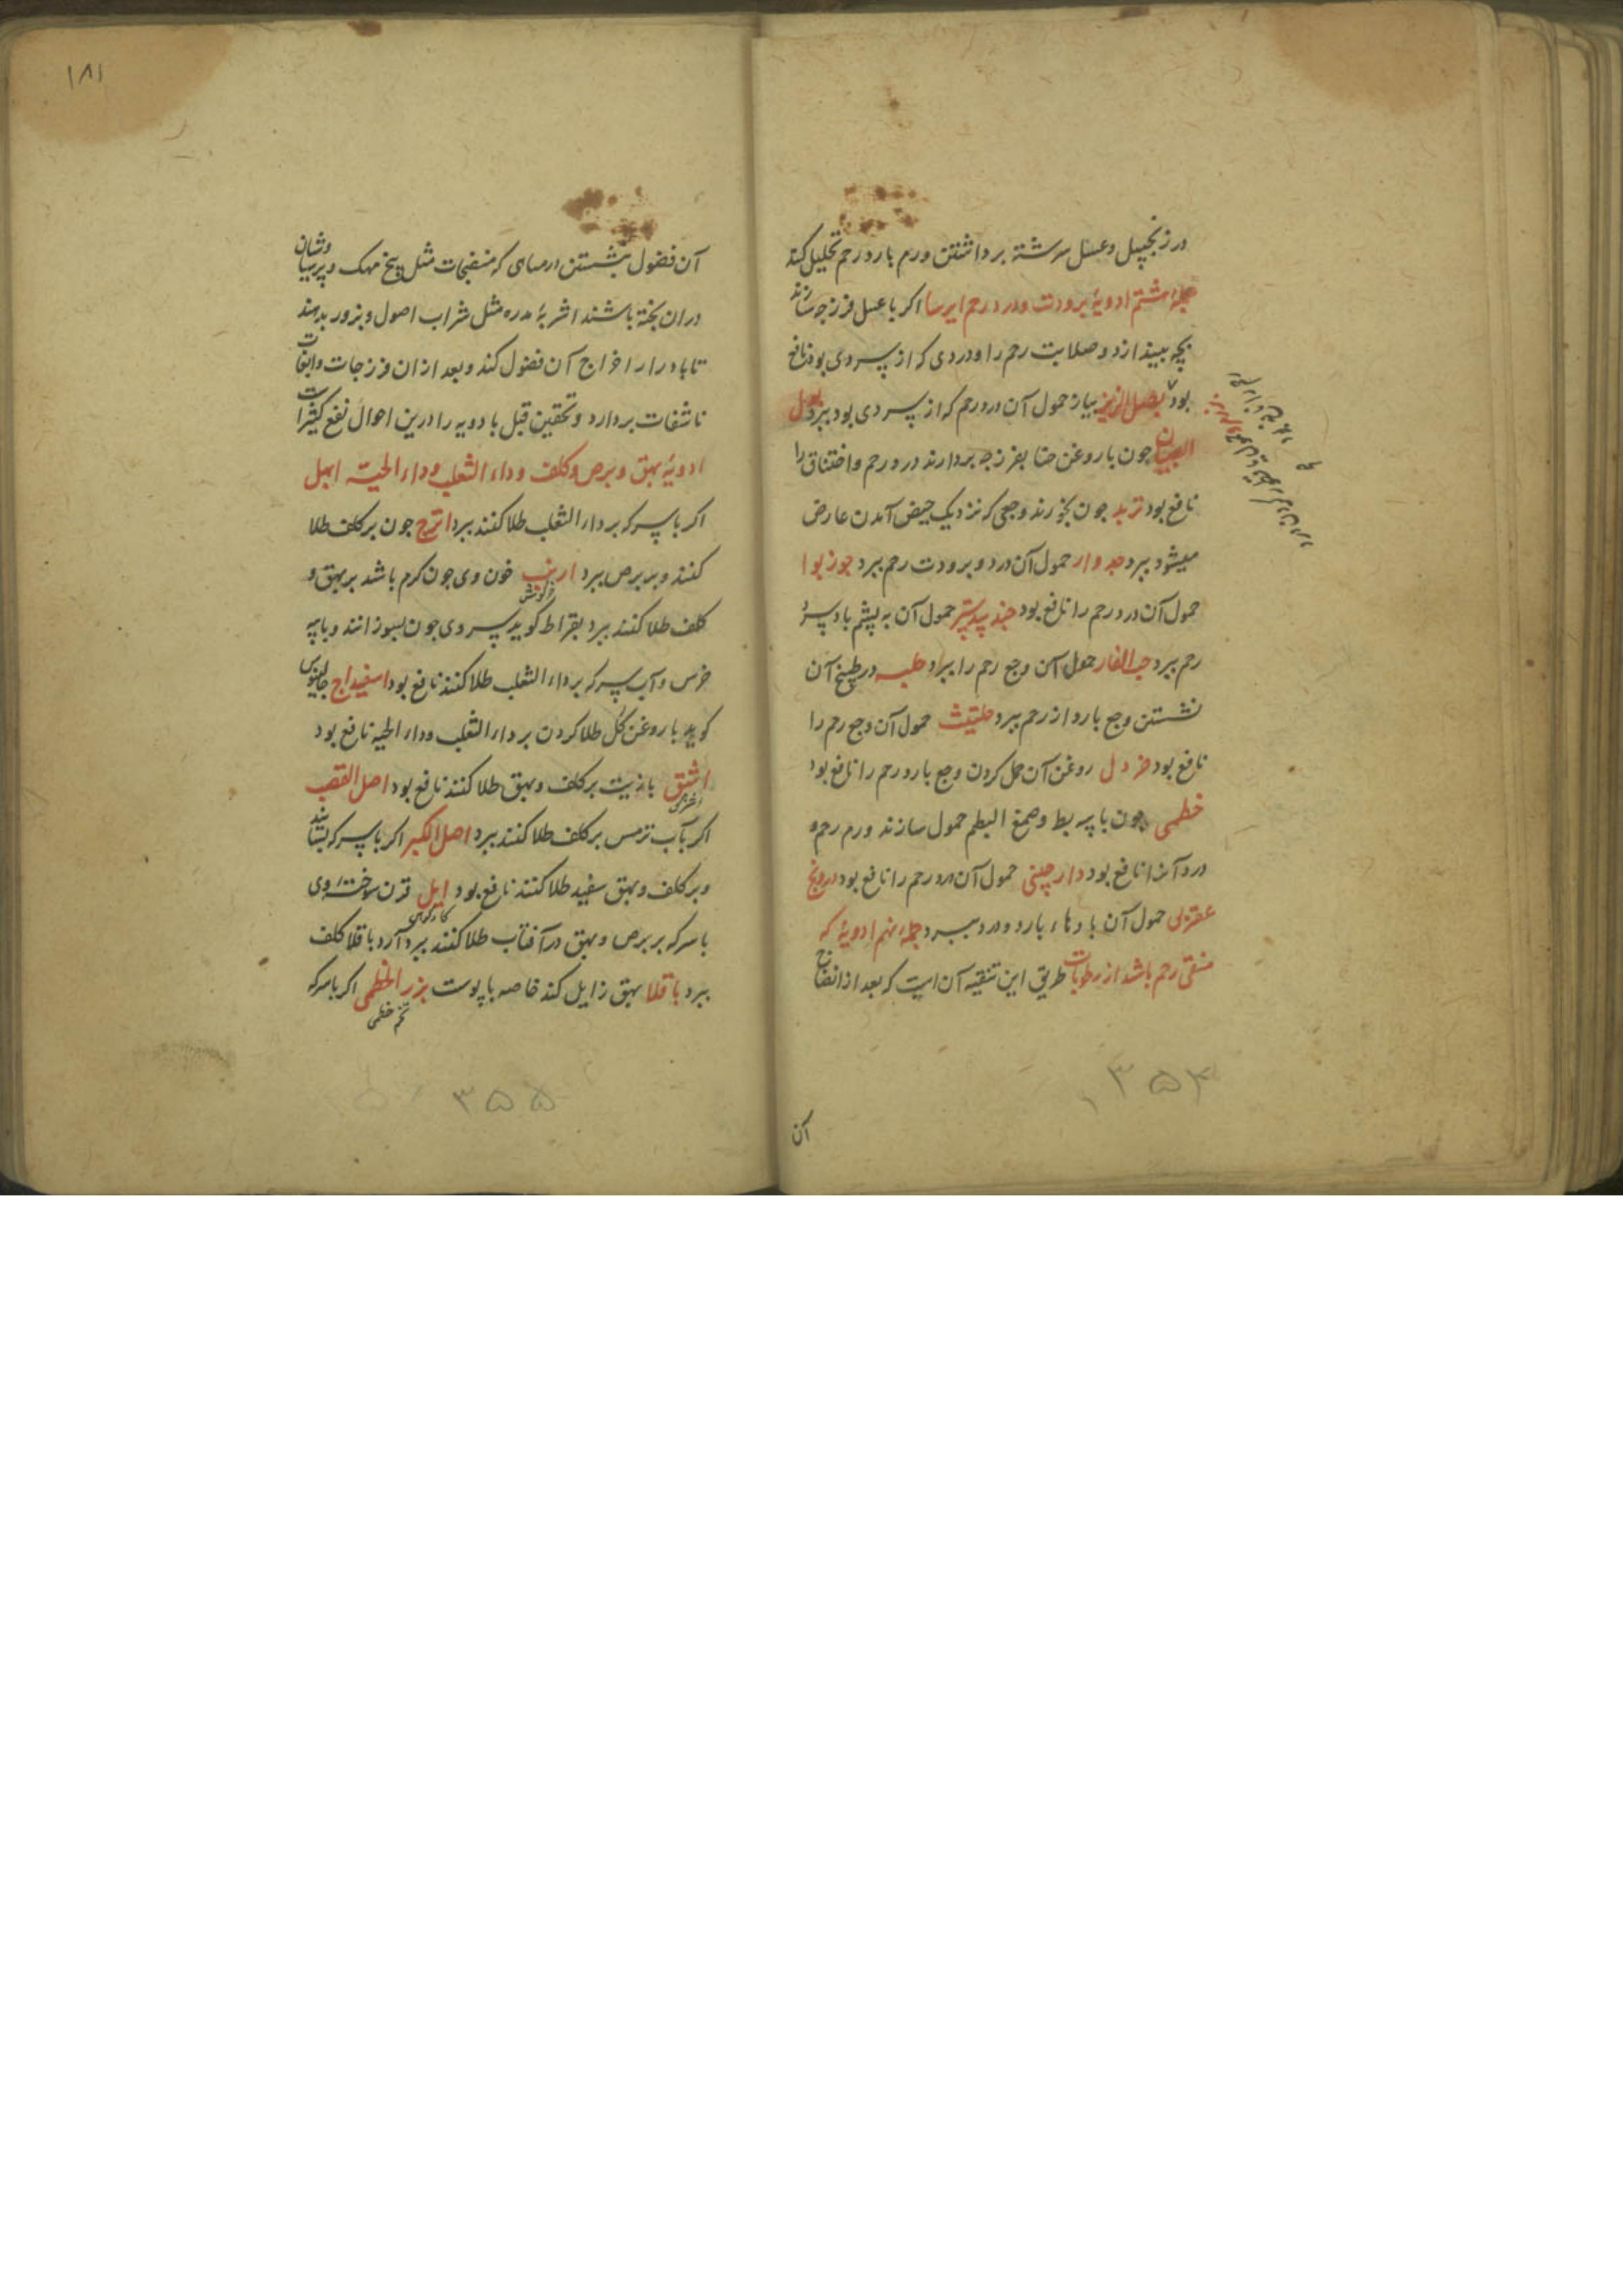 در زنجبیل و عسل سرشته برداشتن ورم بارد رحم تحلیل کند
جمله هشتم ادویهٔ برودت و درد رحم ایرسا اکر با عسل فرزجه سازند
بچه بیندازد و صلابت رحم را و دردی که از سردی بود نافع
بود بصل النرجس بیاز حمول آن درد رحم که از سردی بود ببرد
البیسان جون با روغن حنا بفرزجه بردارند درد رحم و اختناق را
نافع بود تربد جون بخورند وجعی که نزدیک حیض آمدن عارض
میشود ببرد جدوار حمول آن درد و برودت رحم ببرد جوزبوا
حمول آن درد رحم را نافع بود جندبیدستر حمول آن به پشم باد سرد
رحم ببرد حب الغار حمول آن وجع رحم را ببرد حلبه در طبیخ آن
نشستن وجع بارد از رحم ببرد حلتیت حمول آن وجع رحم را
نافع بود خردل روغن آن حمل کردن وجع بارد رحم را نافع بود
خطمی جون با پیه بط و صمغ البطم حمول سازند ورم رحم و
درد آنرا نافع بود دارچینی حمول آن درد رحم را نافع بود درونج
عقربی حمول آن بادهاء بارد و درد ببرد جمله نهم ادویهٔ که
منقی رحم باشد از رطوبات طریق این تنقیه آن است که بعد از انضاج
۳۵۴
آن
۱۸۱
آن فضول بنشستن در میاهی که منضجات مثل بیخ مهک و پرسیاوشان
دران بخته باشند اشربهٔ مدره مثل شراب اصول و بزور بدهند
تا بادرار اخراج آن فضول کند و بعد ازان فرزجات و
ناشفات بردارد و تحقین قبل بادویه را درین احوال نفع کثیراست
ادویهٔ بهق و برص و کلف و داء الثعلب و داء الحیه ابهل
اکر با سرکه بر داء الثعلب طلا کنند ببرد اترج جون بر کلف طلا
کنند و بر برص ببرد ارنب خون وی جون کرم باشد بر بهق و
خرکوش
کلف طلا کنند ببرد بقراط کوید سر وی جون بسوزانند و با پیه
خرس و آب سرکه بر داء الثعلب طلا کنند نافع بود اسفیداج جالینوس
کوید با روغن کل طلا کردن بر داء الثعلب و داء الحیه نافع بود
اشق با زیت بر کلف و بهق طلا کنند نافع بود اصل القصب
اکر بآب ترمس بر کلف طلا کنند ببرد اصل الکبر اکر با سرکه بسایند
و بر کلف و بهق سفید طلا کنند نافع بود ایل قرن سوختهٔ وی
کاو کوهی
با سرکه بر برص و بهق در آفتاب طلا کنند ببرد آرد باقلا کلف
ببرد باقلا بهق زایل کند خاصه با پوست بزر الخطمی اکر با سرکه
تخم خطمی
۳۵۵